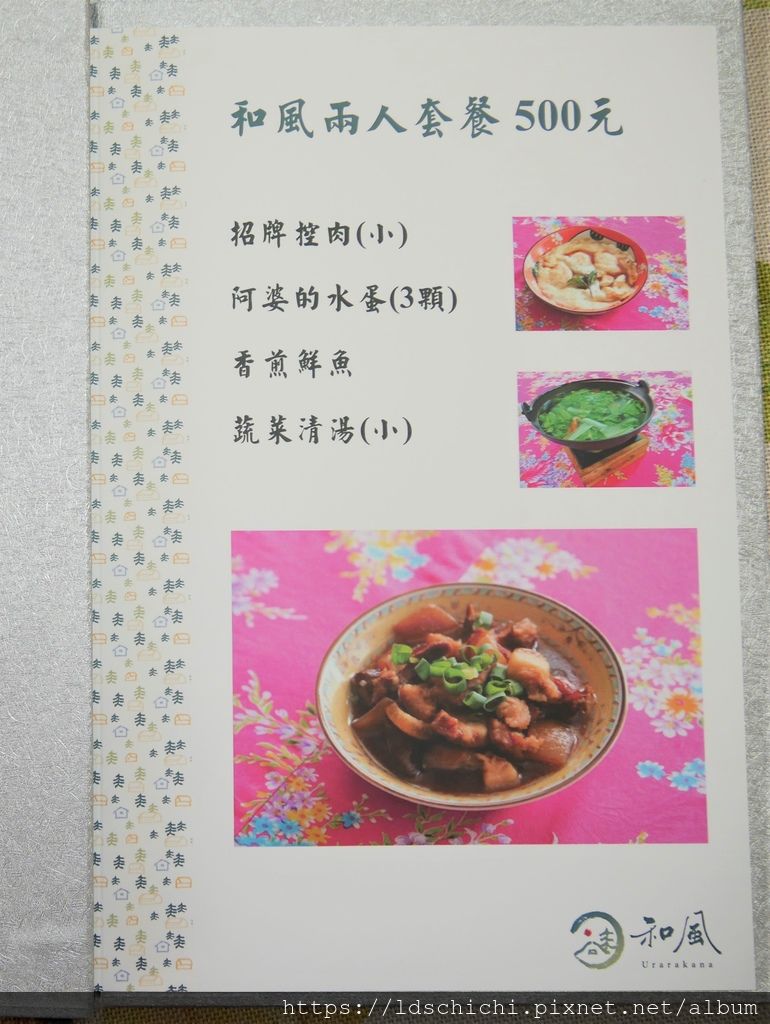 和風兩人套餐 500元
招牌控肉(小)
阿婆的水蛋(3顆)
香煎鮮魚
蔬菜清湯(小)
和風
Urarakana
https://ldschichi.pixnet.net/album